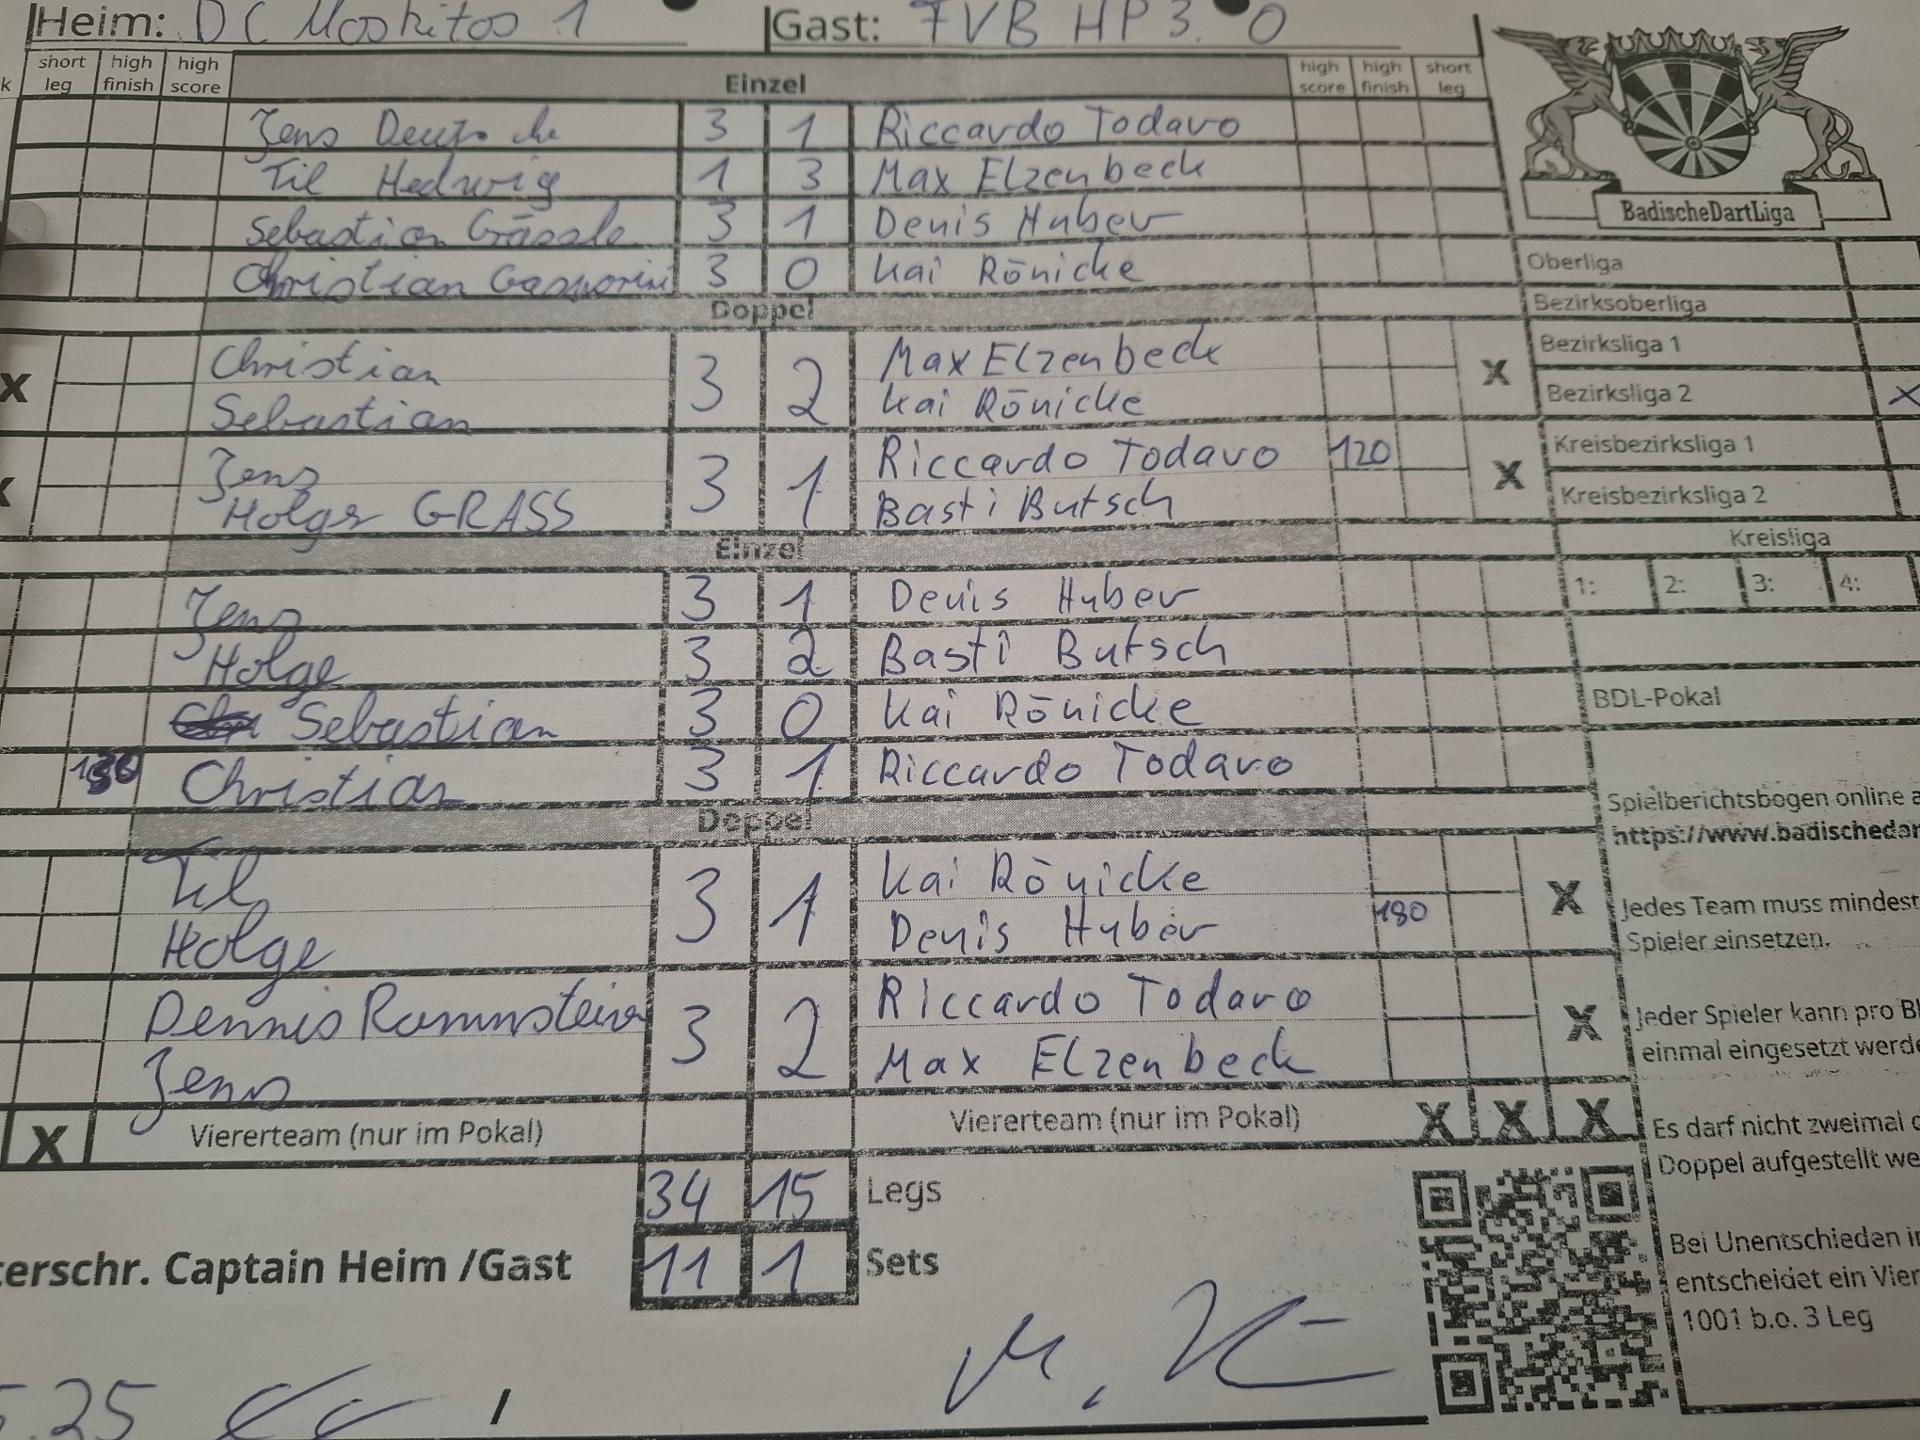 Heim: DC Moskitos 1 Gast: FVB HP 3. 0
k short leg high finish high score Einzel high score high finish short leg
Jens 3 1 Riccardo Todaro
Til Hedwig 1 3 Max Elzenbeck
Sebastian Gässle 3 1 Denis Huber
Christian Gasparini 3 0 Kai Rönicke
BadischeDartLiga
Oberliga
Doppel
Bezirksoberliga
Christian 3 2 Max Elzenbeck
Sebastian Kai Rönicke
X X
Bezirksliga 1
Bezirksliga 2 X
Jens 3 1 Riccardo Todaro 120
Holger GRASS Basti Butsch
X
Kreisbezirksliga 1
Kreisbezirksliga 2
Einzel
Kreisliga
1: 2: 3: 4:
Jens 3 1 Denis Huber
Holge 3 2 Basti Butsch
Sebastian 3 0 Kai Rönicke
BDL-Pokal
Christian 3 1 Riccardo Todaro
Doppel
Spielberichtsbogen online a
https://www.badischedar
Til 3 1 Kai Rönicke
Holge Denis Huber 180
X
Jedes Team muss mindest
Spieler einsetzen.
Dennis Rammsteiner 3 2 Riccardo Todaro
Jens Max Elzenbeck
X
Jeder Spieler kann pro Bl
einmal eingesetzt werde
X Viererteam (nur im Pokal) Viererteam (nur im Pokal) X X X
Es darf nicht zweimal d
Doppel aufgestellt we
34 15 Legs
terschr. Captain Heim /Gast 11 1 Sets
Bei Unentschieden i
entscheidet ein Vier
1001 b.o. 3 Leg
.25 /